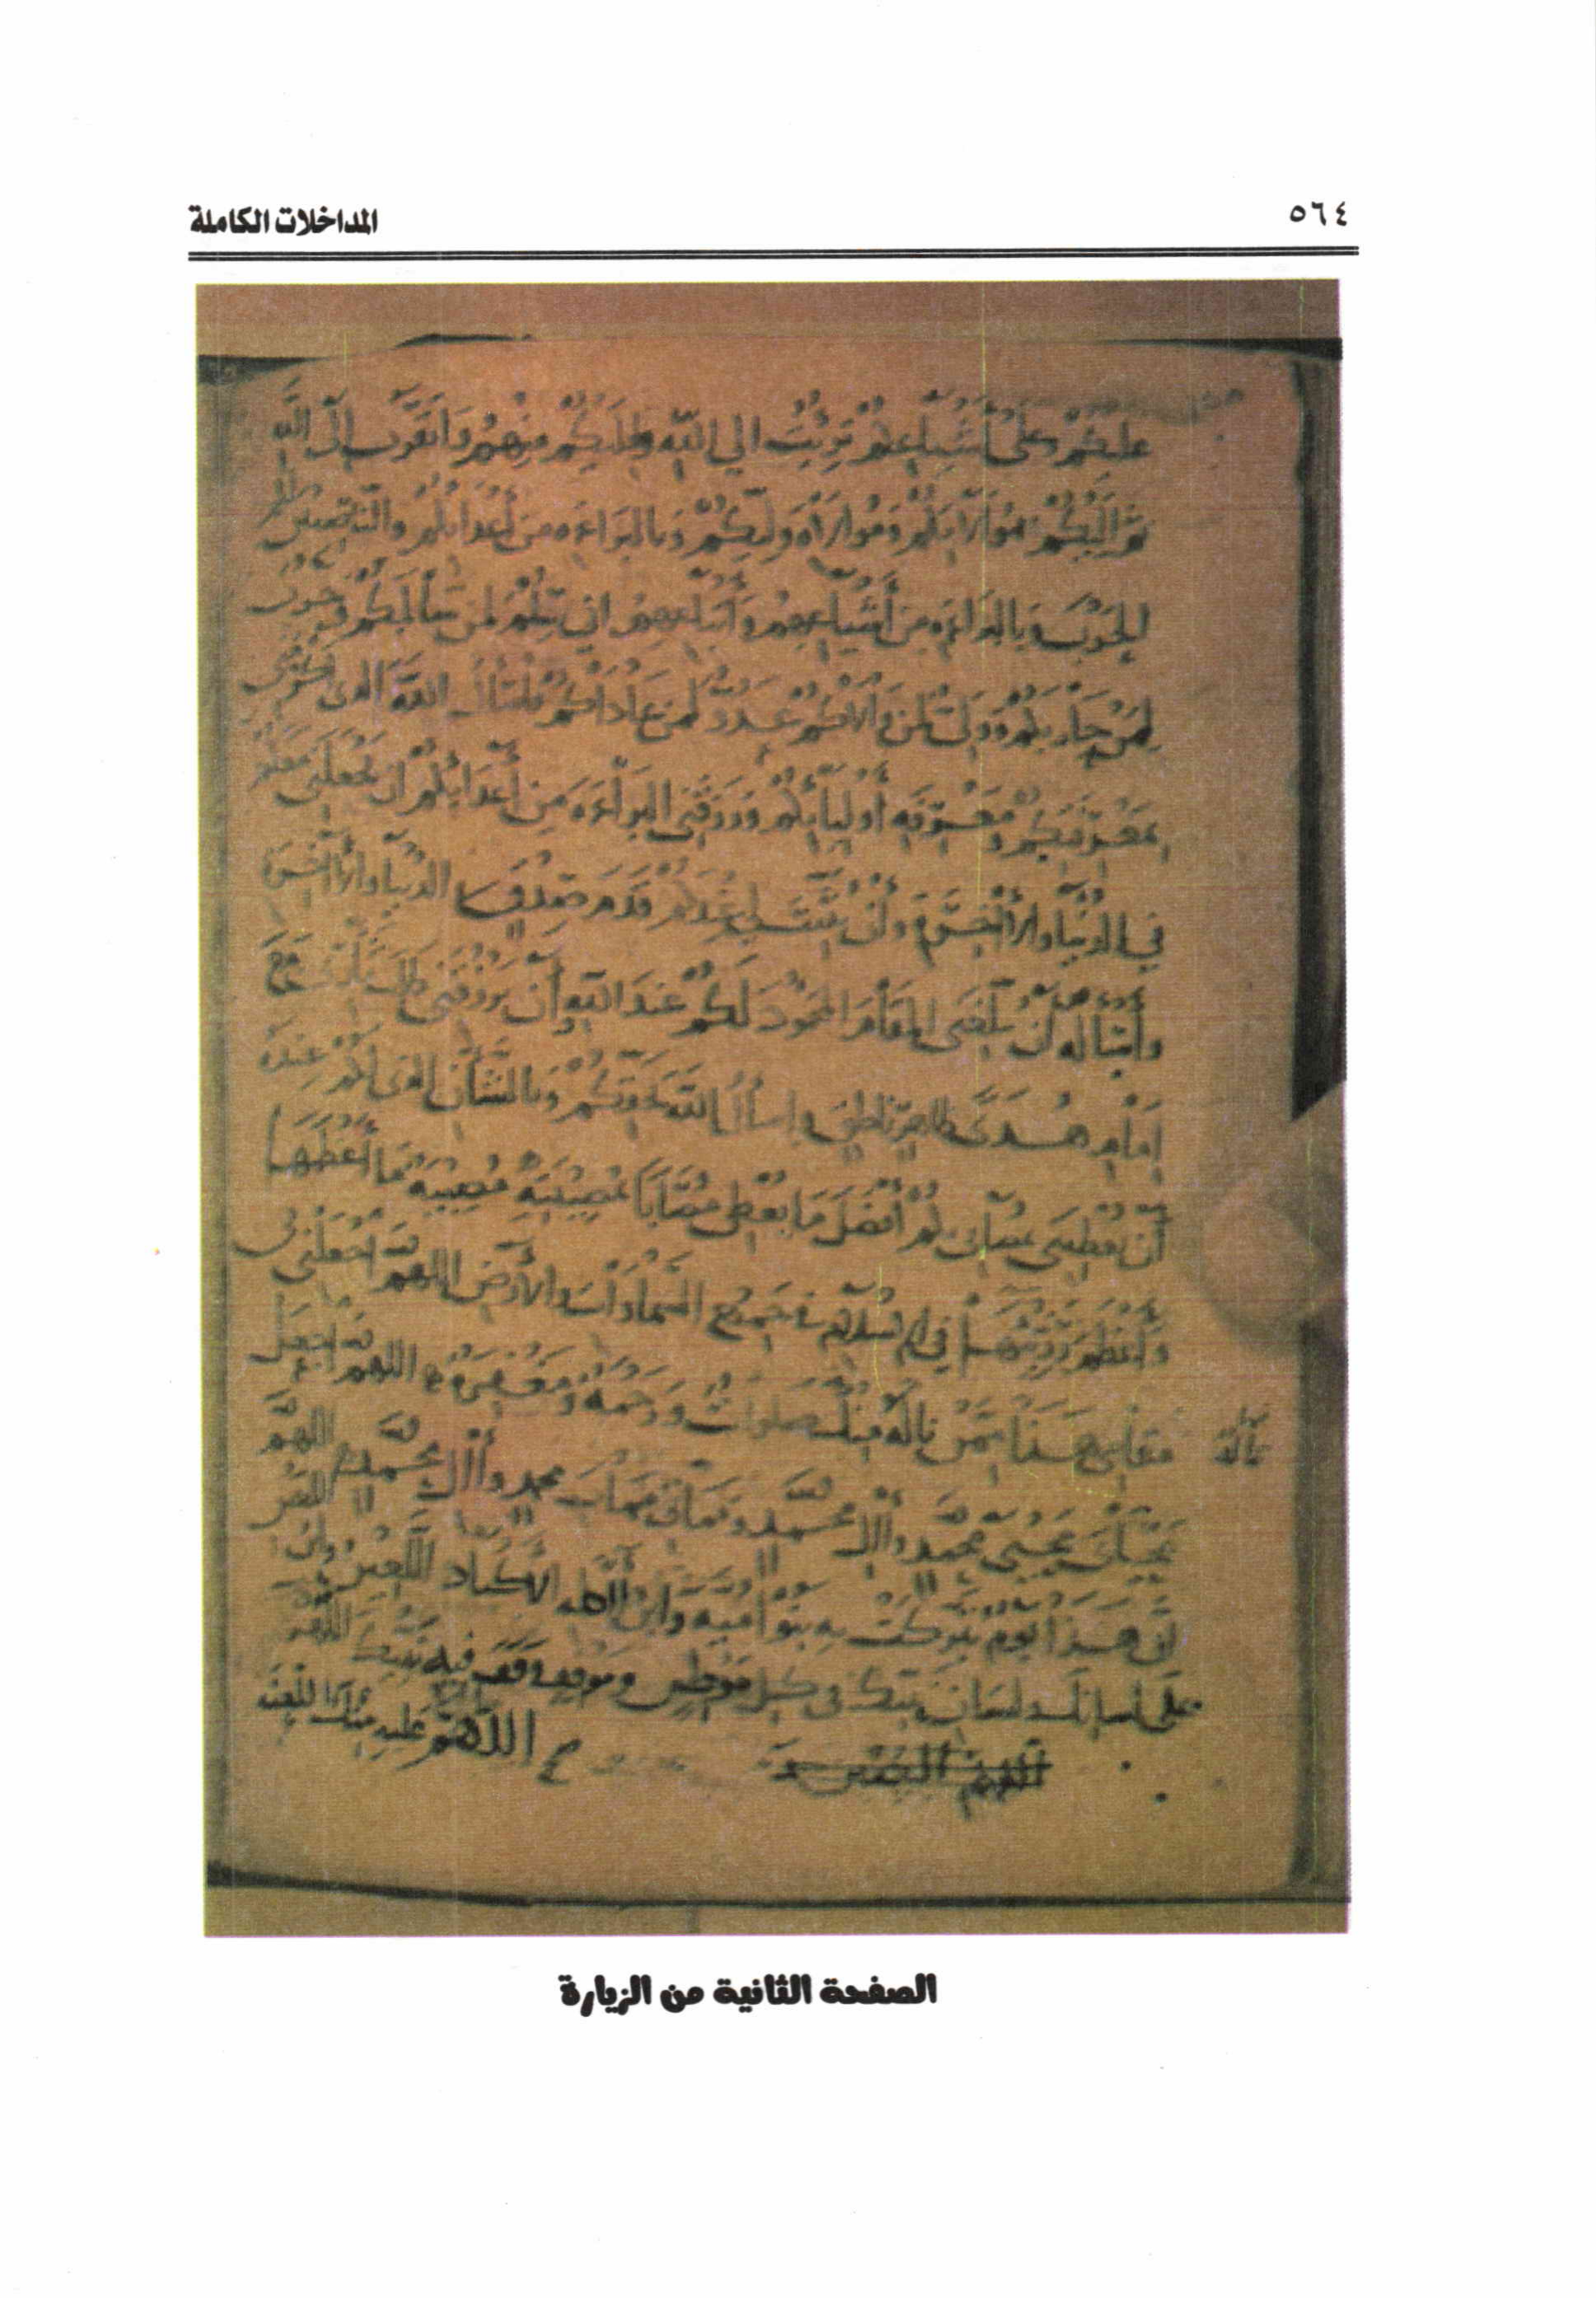 ٥٦٤
المداخلات الكاملة
عليكم وعلى أشياعكم برئت الى الله واليكم منهم واتقرب الى الله
ثم اليكم بموالاتكم وموالاة وليكم وبالبراءة من أعدائكم والناصبين لكم
الحرب وبالبراءة من أشياعهم وأتباعهم اني سلم لمن سالمكم وحرب
لمن حاربكم وولي لمن والاكم عدو لمن عاداكم فاسأل الله الذى اكرمنى
بمعرفتكم ومعرفة أوليائكم ورزقني البراءة من أعدائكم ان يجعلنى معكم
في الدنيا والآخرة وأن يثبت لي عندكم قدم صدق الدنيا والآخرة
وأسأله أن يبلغنى المقام المحمود لكم عند الله وأن يرزقنى طلب مع
إمام هدى ظاهر ناطق واسأل الله بحقكم وبالشأن الذى لكم عنده
أن يعطينى بمصابي بكم أفضل ما يعطى مصابا بمصيبته مصيبة ما أعظمها
وأعظم رزيتها في الاسلام في جميع السماوات والأرض اللهم اجعلنى في
مقامي هذا ممن ناله منك صلوات ورحمة ومغفرة اللهم اجعل
تناله
محياى محيى محمد وآل محمد ومماتى ممات محمد وآل محمد اللهم
ان هذا يوم تبركت به بنو أمية وابن آكلة الاكباد اللعين
على لسانك ولسان نبيك في كل موطن وموقف وقف فيه نبيك اللهم
اللهم
الصفحة الثانية من الزيارة